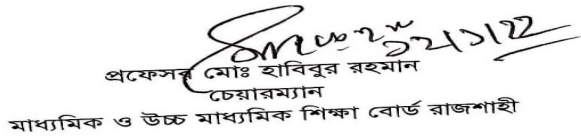 ১২/১/22
প্রফেসর মোঃ হাবিবুর রহমান
চেয়ারম্যান
মাধ্যমিক ও উচ্চ মাধ্যমিক শিক্ষা বোর্ড রাজশাহী